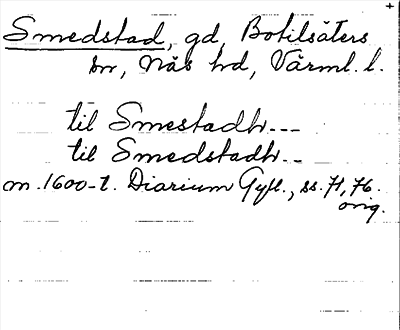 Smedstad, gd, Botilsäters
sn, Näs hd, Värml. l.
til Smestadh---
til Smedstadh--
m. 1600-t. Diarium Gyll., ss. 71, 76.
orig.